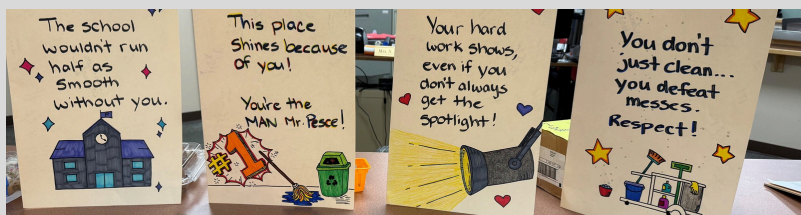 The school
wouldn't run
half as
smooth
without you.
This place
shines because
of you!
You're the
MAN Mr. Pesce!
#1
Your hard
work shows,
even if you
don't always
get the
spotlight!
You don't
just clean...
you defeat
messes.
Respect!